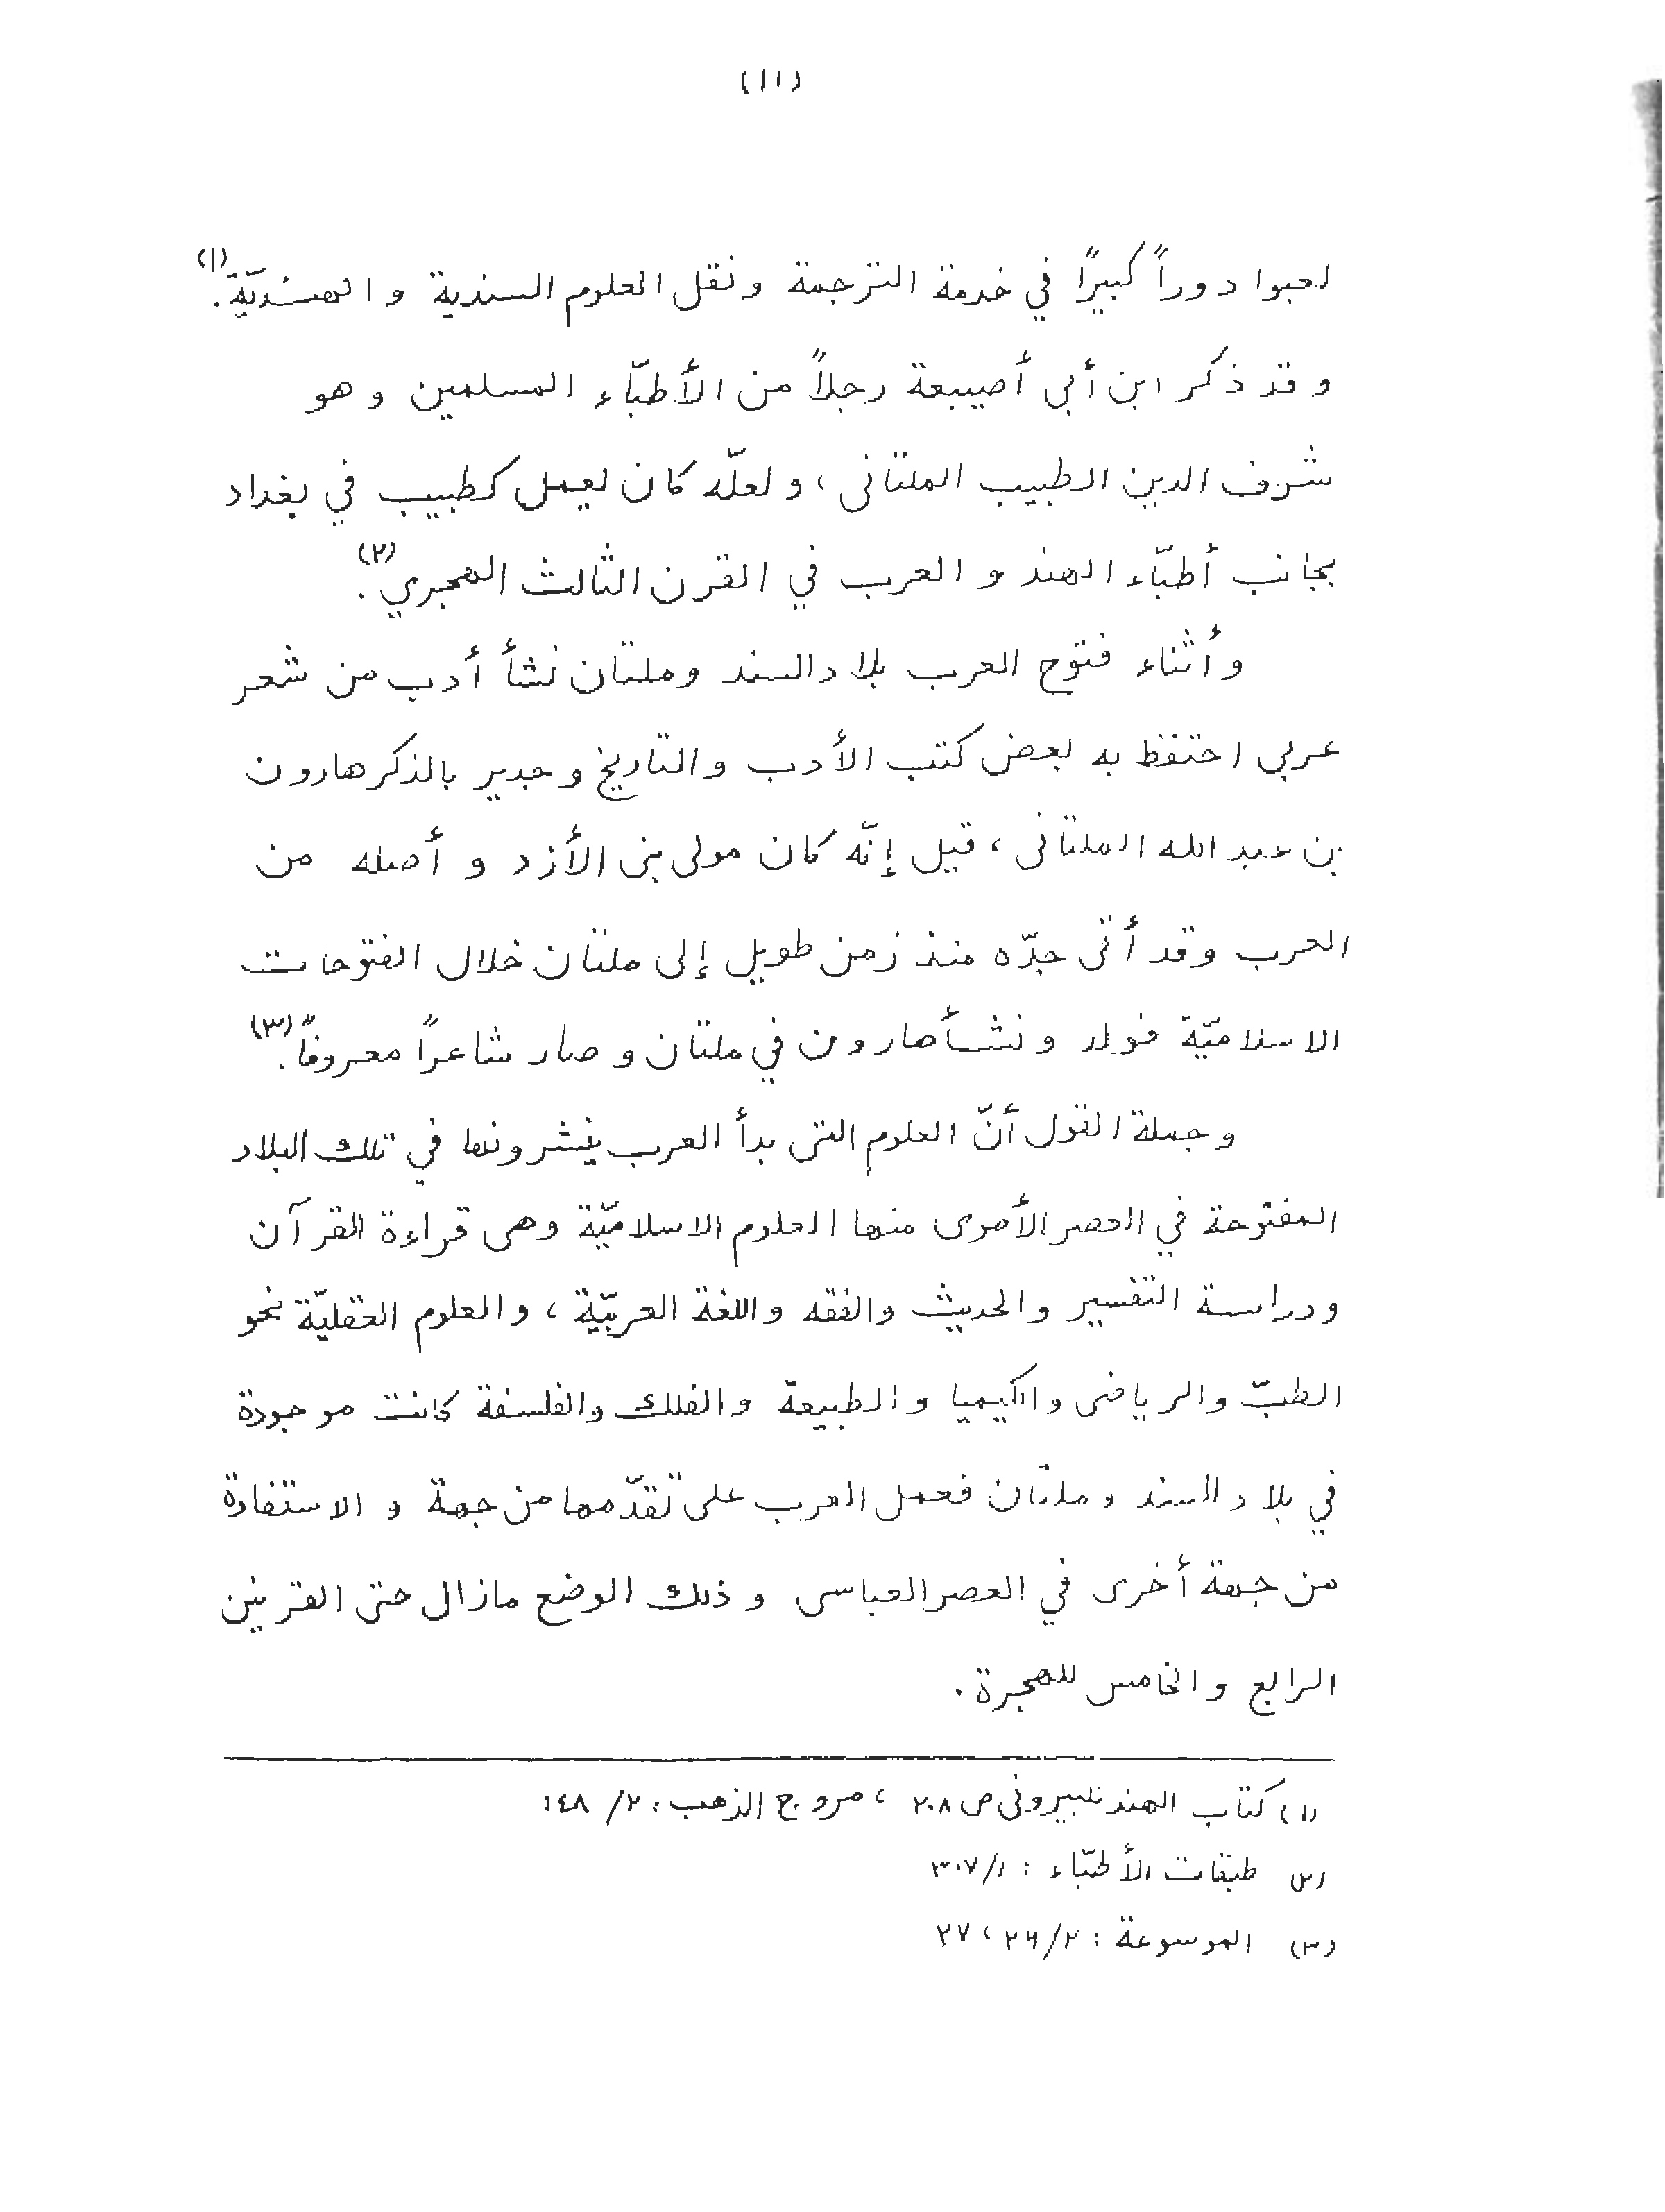 (١١)
لعبوا دوراً كبيرًا في خدمة الترجمة ونقل العلوم السندية و الهنديّة.(١)
و قد ذكر ابن أبى أصيبعة رجلاً من الأطبّاء المسلمين و هو
شرف الدين الطبيب الملتانى ، و لعلّه كان يعمل كطبيب في بغداد
بجانب أطبّاء الهند و العرب في القرن الثالث الهجري.(٢)
و أثناء فتوح العرب بلاد السند وملتان نشأ أدب من شعر
عربى احتفظ به بعض كتب الأدب و التاريخ و جدير بالذكر هارون
بن عبد الله الملتانى ، قيل إنّه كان مولى بنى الأزد و أصله من
العرب وقد أتى جدّه منذ زمن طويل إلى ملتان خلال الفتوحات
الاسلاميّة فولد و نشأ هارون في ملتان و صار شاعراً معروفًا.(٣)
و جملة القول أنّ العلوم التى بدأ العرب ينشرونها في تلك البلاد
المفتوحة في العصر الأموى منها العلوم الاسلاميّة وهى قراءة القرآن
ودراسة التفسير و الحديث والفقه و اللغة العربيّة ، و العلوم العقليّة نحو
الطبّ والرياضى و الكيميا و الطبيعة و الفلك والفلسفة كانت موجودة
في بلاد السند و ملتان فعمل العرب على تقدّمها من جهة و الاستفادة
من جهة أخرى في العصر العباسى و ذلك الوضع مازال حتى القرنين
الرابع و الخامس للهجرة .
(١) كتاب الهند للبيرونى ص ٢٠٨ ، مروج الذهب : ٢/ ١٤٨
(٢) طبقات الأطبّاء : ١/ ٣٠٧
(٣) الموسوعة : ٢/ ٢٦ ، ٢٧